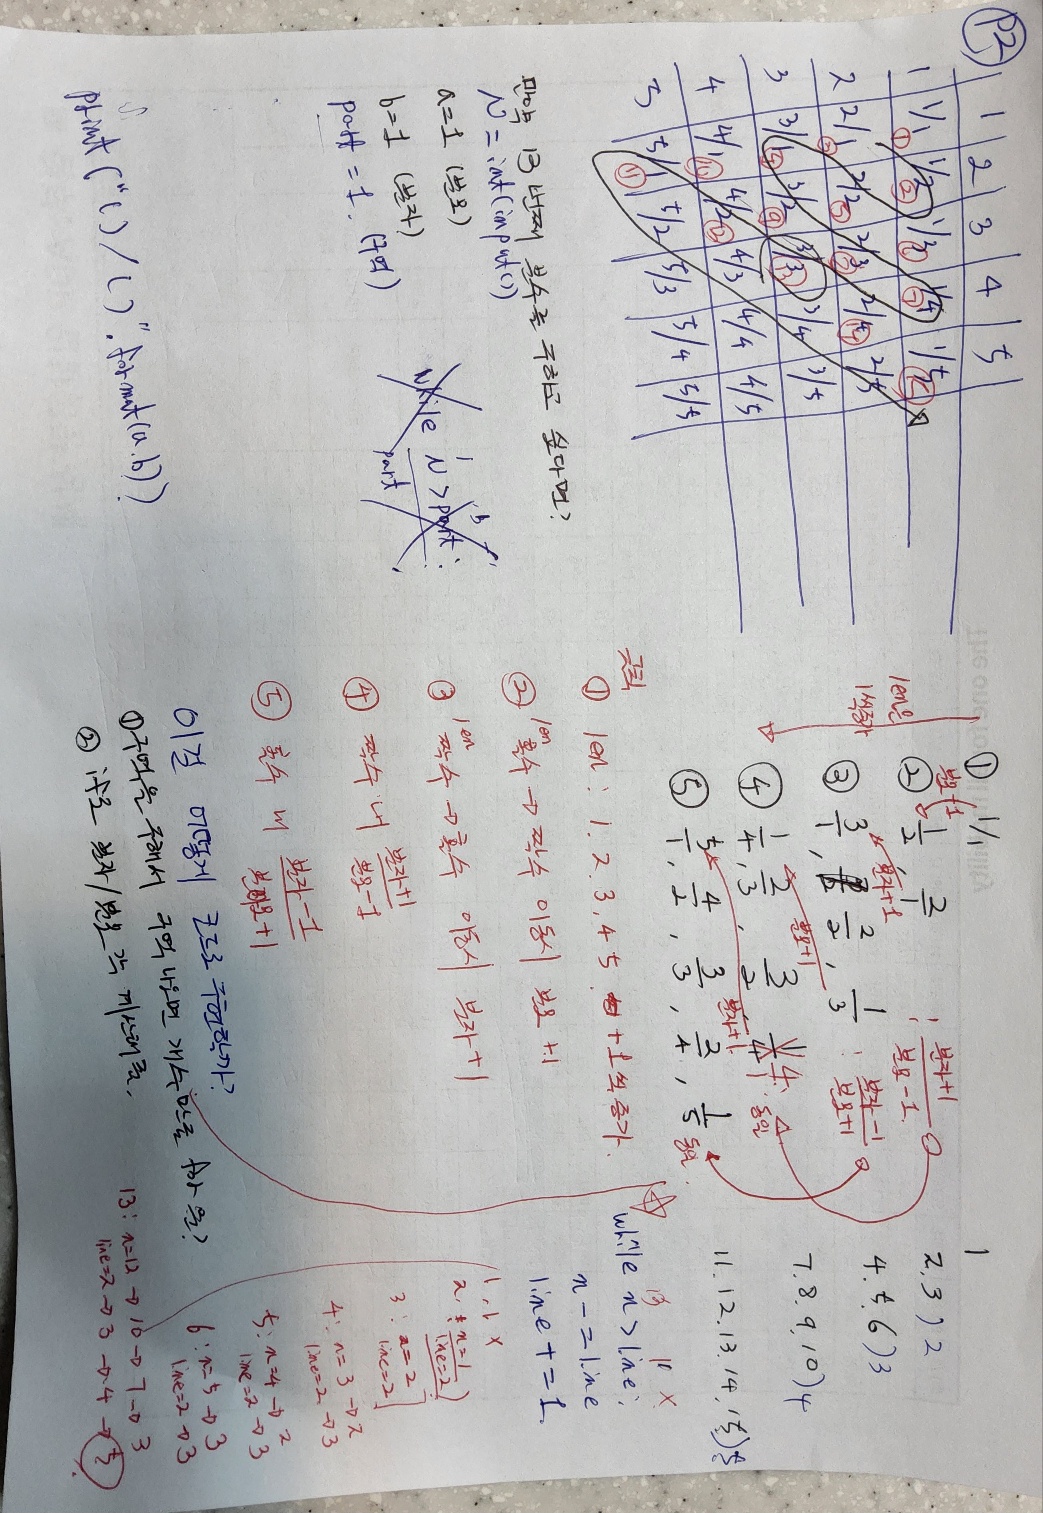 P2
1 2 3 4 5
1 1/1 1/2 1/3 1/4 1/5
2 2/1 2/2 2/3 2/4 2/5
3 3/1 3/2 3/3 3/4 3/5
4 4/1 4/2 4/3 4/4 4/5
5 5/1 5/2 5/3 5/4 5/5
만약 13번째 분수를 구하고 싶다면?
N = int(input())
a=1 (분모)
b=1 (분자)
part = 1. (구역)
while N > part:
part
print("{}/{}".format(a,b))
len은 1씩 증가
① 1/1
분모+1
② 1/2, 2/1 : 분자+1/분모-1
분자+1
③ 3/1, 2/2, 1/3 : 분자-1/분모+1
분모+1
④ 1/4, 2/3, 3/2, 4/1 : 동일
분자+1
⑤ 5/1, 4/2, 3/3, 2/4, 1/5 동일
규칙
① len : 1. 2. 3. 4. 5 +1씩 증가.
② len 홀수 → 짝수 이동시 분모 +1
③ len 짝수 → 홀수 이동시 분자+1
④ 짝수 내 분자+1/분모-1
⑤ 홀수 내 분자-1/분모+1
이걸 어떻게 코드로 구현할까?
① 구역을 구해서 구역 내 개수만큼 for 문?
1
2, 3) 2
4. 5. 6) 3
7. 8. 9. 10) 4
11. 12. 13. 14. 15) 5
while n > line:
n -= line
line += 1
1, 1 x
2 : n=1
line=2
3 : n=2
line=2
4 : n=3 → 2
line=2 → 3
5 : n=4 → 2
line=2 → 3
6 : n=5 → 3
line=2 → 3
13 : n=12 → 10 → 7 → 3
line=2 → 3 → 4 → 5